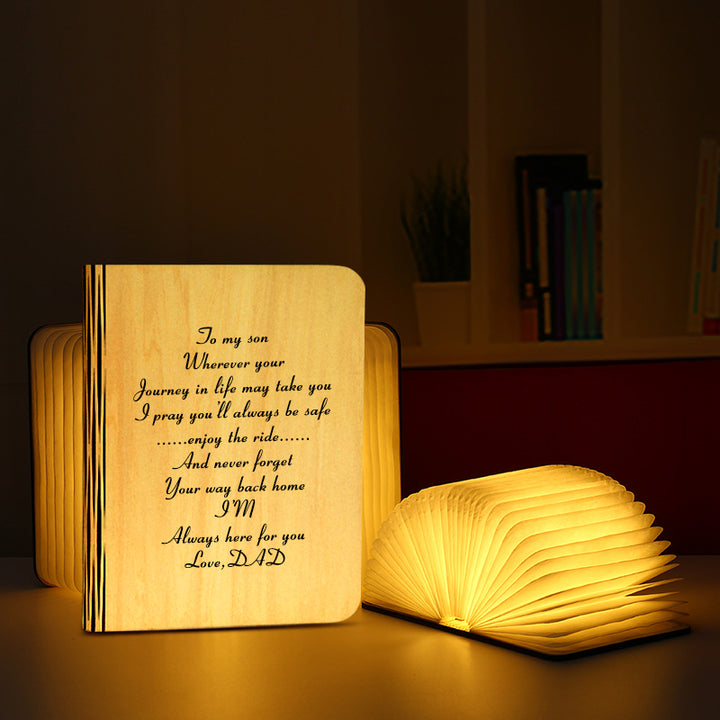 To my son
Wherever your
Journey in life may take you
I pray you'll always be safe
......enjoy the ride......
And never forget
Your way back home
I'M
Always here for you
Love,DAD